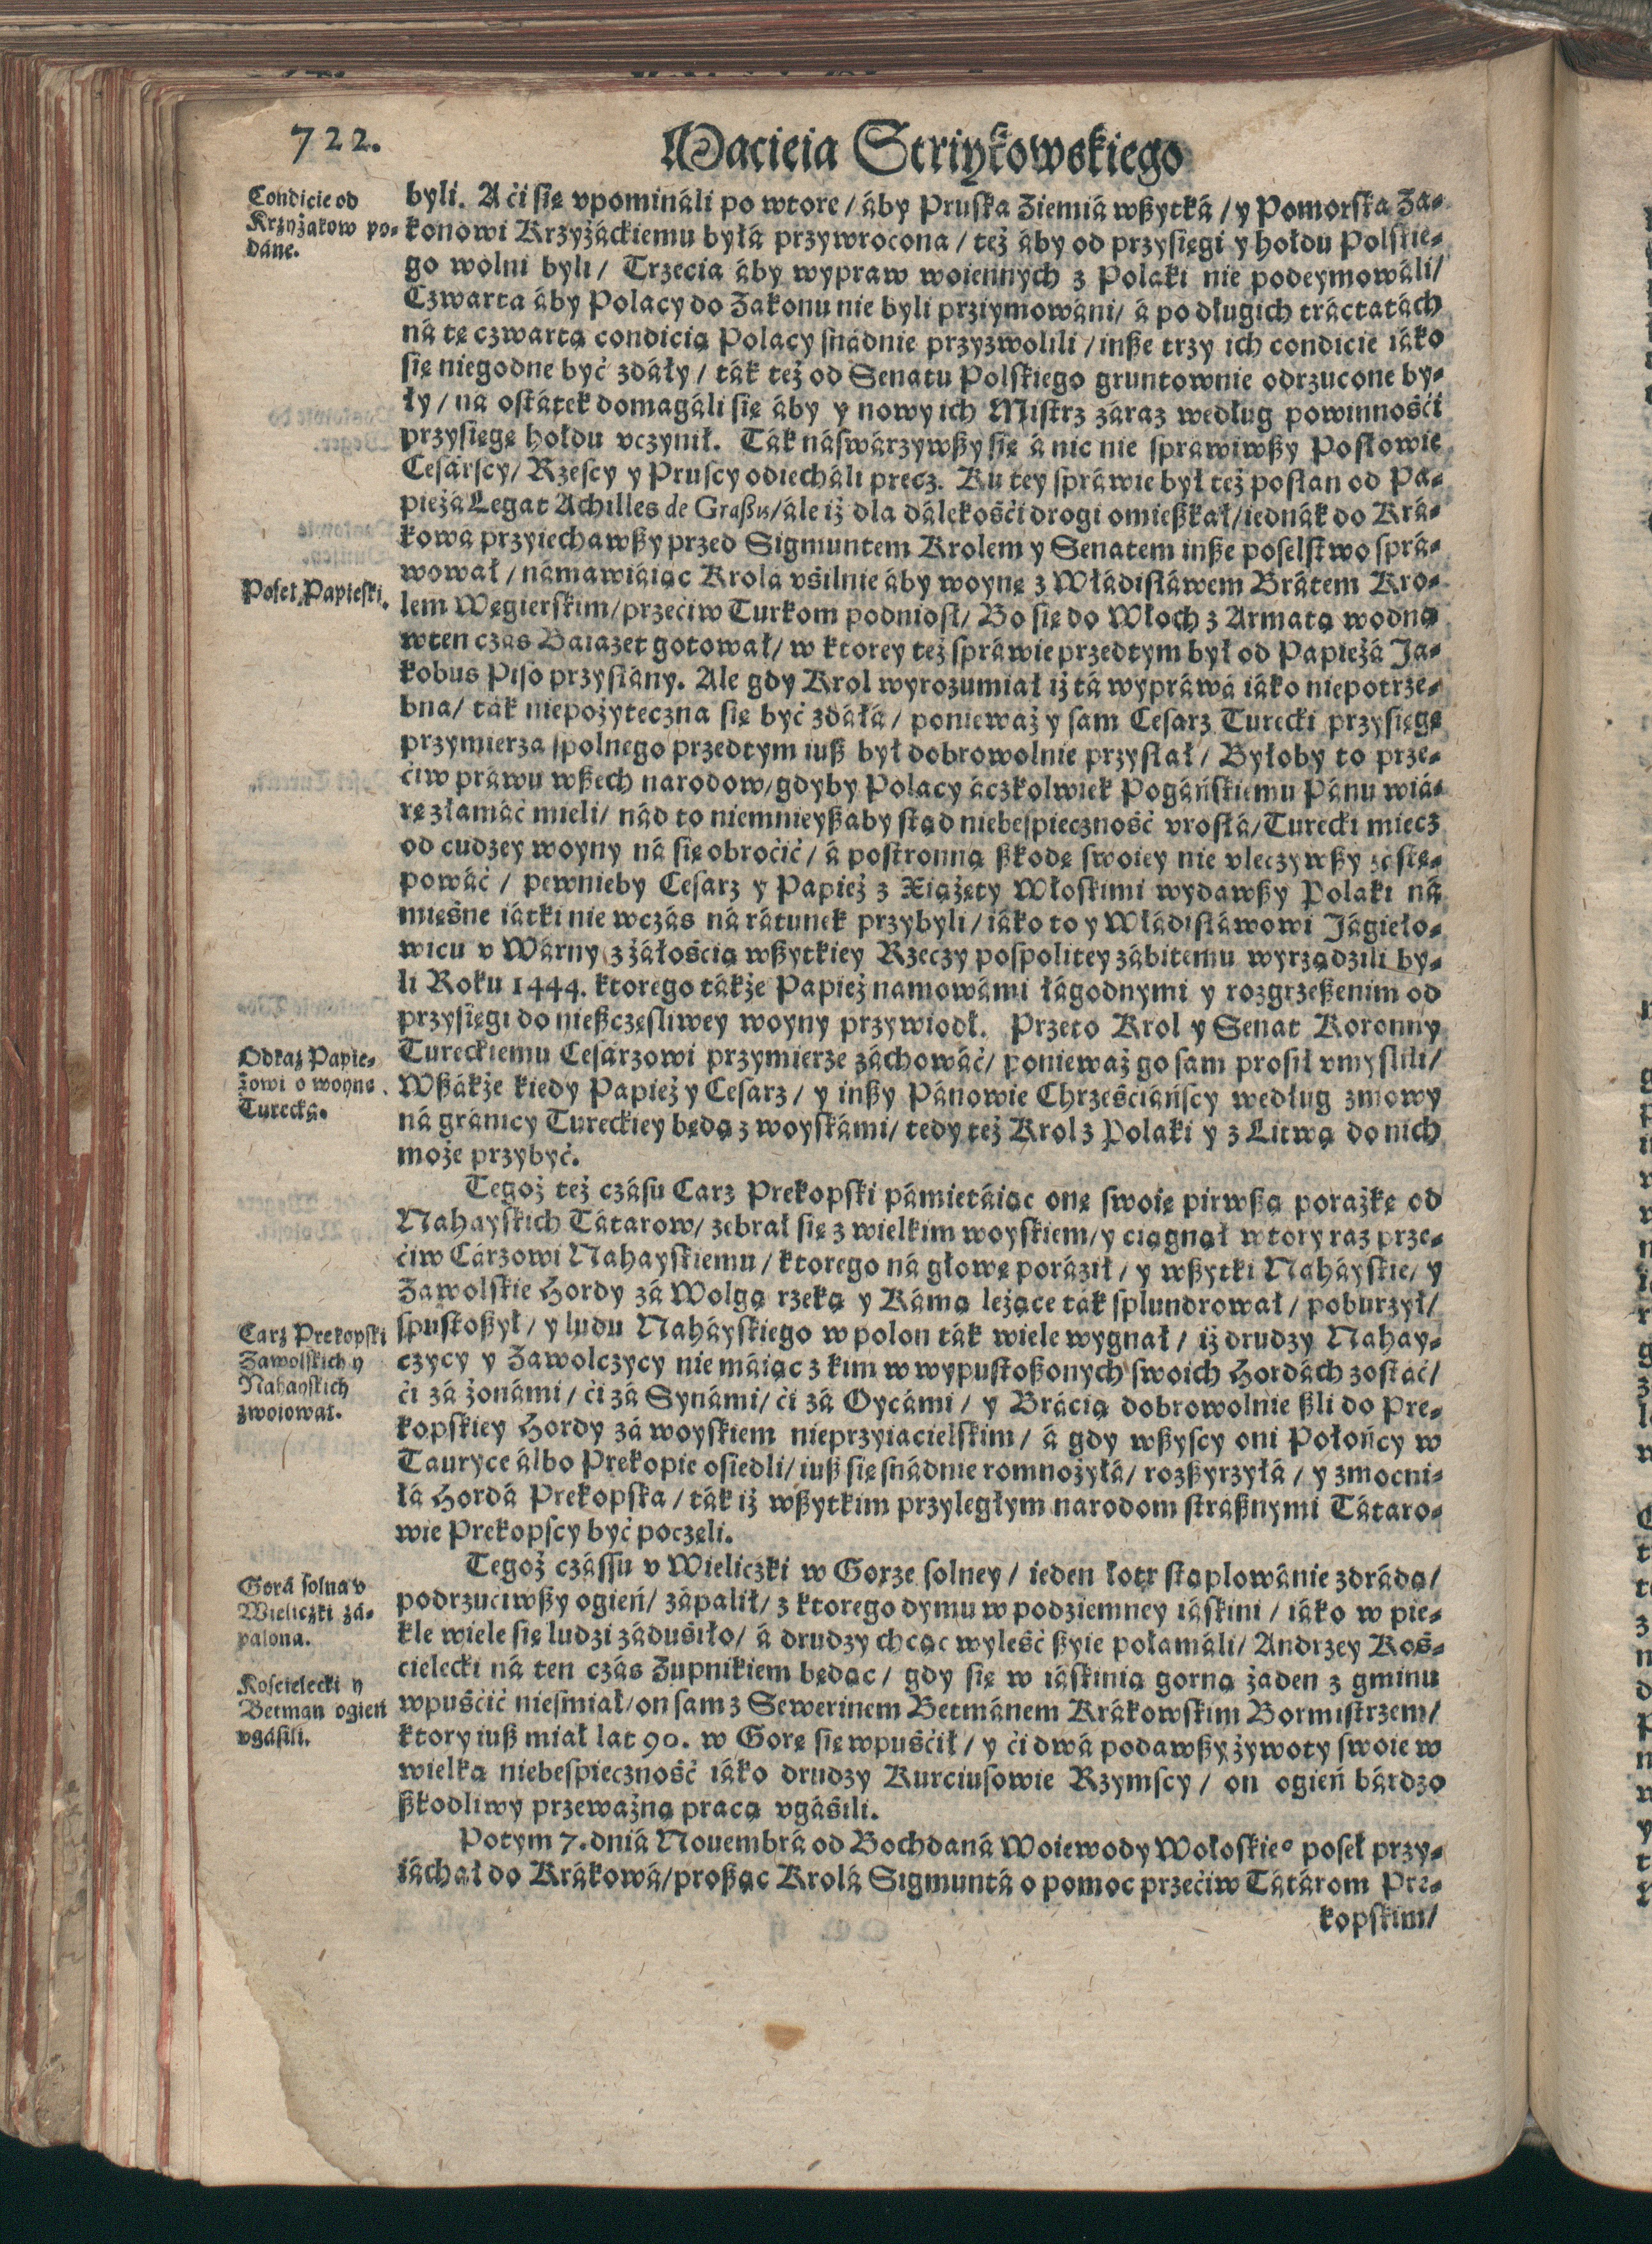 722.
Macieia Striykowskiego
Condicie od
Krzyżakow po-
dáne.
byli. A ći się vpomináli po wtore / áby Pruska Ziemiá wßytká / y Pomorska Za-
konowi Krzyżáckiemu byłá przywrocona / też áby od przysięgi y hołdu Polskie-
go wolni byli / Trzecia áby wypraw woiennych z Polaki nie podeymowáli /
Czwarta áby Polacy do Zakonu nie byli prziymowáni / á po długich tráctatách
ná tę czwartą condicią Polacy snádnie przyzwolili / inße trzy ich condicie iáko
się niegodne być zdáły / ták też od Senatu Polskiego gruntownie odrzucone by-
ły / ná ostátek domagáli się áby y nowy ich Mistrz záraz według powinnośći
przysięgę hołdu vczynił. Ták náswárzywßy się á nic nie sprawiwßy Posłowie
Cesárscy / Rzescy y Pruscy odiecháli precz. Ku tey spráwie był też posłan od Pa-
pieżá Legat Achilles de Graßis / ále iż dla dálekośći drogi omießkał / iednák do Krá-
kowá przyiechawßy przed Sigmuntem Krolem y Senatem inße poselstwo sprá-
wował / námawiáiąc Krola vśilnie áby woynę z Włádisłáwem Brátem Kro-
Poseł Papieski.
lem Węgierskim / przećiw Turkom podniosł / Bo się do Włoch z Armatą wodną
wten czás Baiazet gotował / w ktorey też spráwie przedtym był od Papieżá Ja-
kobus Piso przysłány. Ale gdy Krol wyrozumiał iż tá wypráwá iáko niepotrze-
bna / ták niepożyteczna się być zdáłá / ponieważ y sam Cesarz Turecki przysięgę
przymierza spolnego przedtym iuß był dobrowolnie przysłał / Byłoby to prze-
ćiw práwu wßech narodow / gdyby Polacy áczkolwiek Pogáńskiemu Pánu wiá-
rę złamáć mieli / nád to niemnieyßaby stąd niebespieczność vrosłá / Turecki miecz
od cudzey woyny ná się obroćić / á postronną ßkodę swoiey nie vleczywßy zástę-
powáć / pewnieby Cesarz y Papież z Xiążęty Włoskimi wydawßy Polaki ná
mięśne iátki nie wczás ná rátunek przybyli / iáko to y Włádisłáwowi Jágieło-
wicu v Wárny z żáłością wßytkiey Rzeczy pospolitey zábitemu wyrządzili by-
li Roku 1444. ktorego tákże Papież namowámi łágodnymi y rozgrzeßenim od
przysięgi do nießczęsliwey woyny przywiodł. Przeto Krol y Senat Koronny
Odkaz Papie-
żowi o woynę
Turecką.
Tureckiemu Cesárzowi przymierze záchowáć / ponieważ go sam prosił vmyslili /
Wßákże kiedy Papież y Cesarz / y inßy Pánowie Chrześciáńscy według zmowy
ná gránicy Tureckiey będą z woyskámi / tedy też Krol z Polaki y z Litwą do nich
może przybyć.
Tegoż też czásu Carz Prekopski pámietáiąc onę swoię pirwßą porażkę od
Nahayskich Tátarow / zebrał się z wielkim woyskiem / y ciągnął wtory raz prze-
ćiw Cárzowi Nahayskiemu / ktorego ná głowę poráził / y wßytki Naháyskie / y
Zawolskie Hordy zá Wolgą rzeką y Kámą leżące ták splundrował / poburzył /
Carz Prekopski
Zawolskich y
Nahayskich
zwoiował.
spustoßył / y ludu Naháyskiego w polon ták wiele wygnał / iż drudzy Nahay-
czycy y Zawolczycy nie máiąc z kim w wypustoßonych swoich Hordách zostáć /
ći zá żonámi / ći zá Synámi / ći zá Oycámi / y Brácią dobrowolnie ßli do Pre-
kopskiey Hordy zá woyskiem nieprzyiacielskim / á gdy wßyscy oni Połońcy w
Tauryce álbo Prekopie osiedli / iuß się snádnie romnożyłá / rozßyrzyłá / y zmocni-
łá Hordá Prekopska / ták iż wßytkim przyległym narodom stráßnymi Tátaro-
wie Prekopscy być poczęli.
Gorá solna v
Wieliczki zá-
palona.
Tegoż czássu v Wieliczki w Gorze solney / ieden łotr stąplowánie zdrádą /
podrzuciwßy ogień / zápalił / z ktorego dymu w podziemney iáskini / iáko w pie-
kle wiele się ludzi zádusiło / á drudzy chcąc wyleść ßyie połamáli / Andrzey Koś-
cielecki ná ten czás Zupnikiem będąc / gdy się w iáskinią gorną żaden z gminu
Koscielecki y
Betman ogień
vgásili.
wpuśćić niesmiał / on sam z Sewerinem Betmánem Krákowskim Bormistrzem /
ktory iuß miał lat 90. w Gorę się wpuśćił / y ći dwá podawßy żywoty swoie w
wielką niebespieczność iáko drudzy Kurciusowie Rzymscy / on ogień bárdzo
ßkodliwy przeważną pracą vgásili.
Potym 7. dniá Nouembrá od Bochdaná Woiewody Wołoskie° poseł przy-
iáchał do Krákowá / proßąc Krolá Sigmuntá o pomoc przećiw Tátárom Pre-
kopskim /